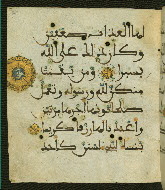 لها العذاب ضعفين
وكان ذلك على الله
يسيرا ومن يقنت
منكن لله ورسوله وتعمل
صلحا نوتها اجرها مرتين
واعتدنا لها رزقا كريما
ينساء النبي لستن كاحد